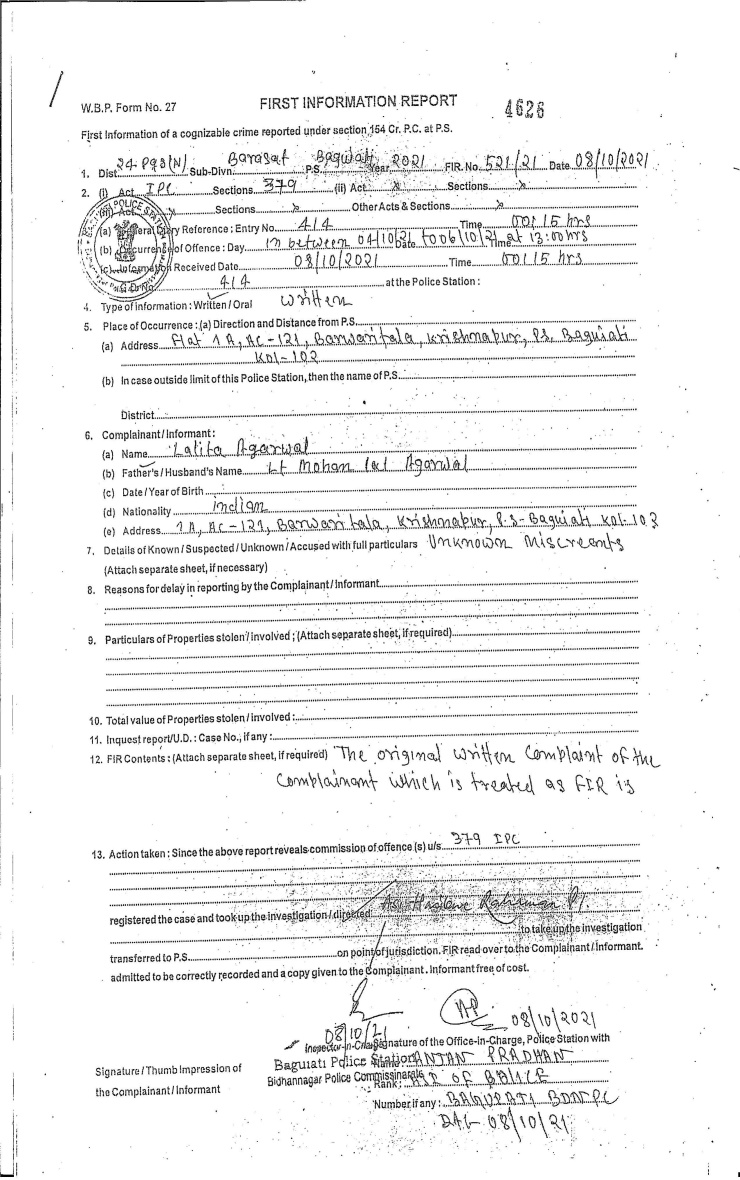 W.B.P. Form No. 27
FIRST INFORMATION REPORT
4626
First Information of a cognizable crime reported under section 154 Cr. P.C. at P.S.
1. Dist. 24-Pgs(N) Sub-Divn. Barasat P.S. Baguiati Year 2021 FIR. No. 521/21 Date 08/10/2021
2. (i) Act IPC Sections 379 (ii) Act x Sections x
(iii) Act x Sections x Other Acts & Sections x
3. (a) General Diary Reference : Entry No. 414 Time 00:15 hrs
(b) Occurrence of Offence : Day in between 04/10/21 Date to 06/10/21 Time at 13:00 hrs
(c) Information Received Date 08/10/2021 Time 00:15 hrs
G.D. No. 414 at the Police Station :
4. Type of information : Written / Oral written
5. Place of Occurrence : (a) Direction and Distance from P.S.
(a) Address Flat 1A, AC-121, Barwaritala, Krishnapur, P.S. Baguiati
Kol-102
(b) In case outside limit of this Police Station, then the name of P.S.
District
6. Complainant / Informant :
(a) Name Lalita Agarwal
(b) Father's / Husband's Name Lt Mohan lal Agarwal
(c) Date / Year of Birth
(d) Nationality indian
(e) Address 1A, AC-121, Barwaritala, Krishnapur, P.S-Baguiati Kol-102
7. Details of Known / Suspected / Unknown / Accused with full particulars Unknown Miscreants
(Attach separate sheet, if necessary)
8. Reasons for delay in reporting by the Complainant / Informant
9. Particulars of Properties stolen / involved ; (Attach separate sheet, if required)
10. Total value of Properties stolen / involved :
11. Inquest report/U.D. : Case No., if any :
12. FIR Contents : (Attach separate sheet, if required) The original written complaint of the
complainant which is treated as FIR is
13. Action taken : Since the above report reveals commission of offence (s) u/s 379 IPC
registered the case and took up the investigation / directed ASI Rahaman
to take up the investigation
transferred to P.S. on point of jurisdiction. FIR read over to the Complainant / Informant.
admitted to be correctly recorded and a copy given to the Complainant. Informant free of cost.
08/10/21
08/10/2021
Inspector-in-Charge Signature of the Office-in-Charge, Police Station with
Baguiati Police Station Name ANJAN PRADHAN
Bidhannagar Police Commissinarate Rank : OF POLICE
Signature / Thumb Impression of
the Complainant / Informant
Number if any : BAGUIATI BDNPC
08/10/21